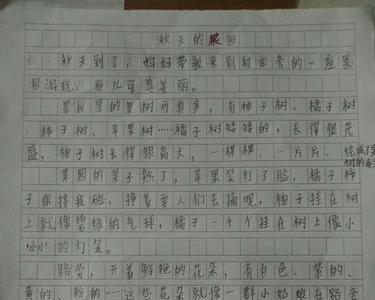 秋天的果园
秋天到了，妈妈带我来到村面旁的一座果
园游玩，那儿可真美丽。
果园里的果树可真多，有柚子树、橘子树
、柿子树、苹果树……橘子树矮矮的，长得很茂
盛，柚子树长得很高大，一棵棵，一片片，
果园的果子熟了，苹果笑红了脸，橘子柿
子你挤我碰，挣着要人们去摘呢，柚子挂在树
上就像碧绿的气球，橘子一个个挂在树上像小
小的灯笼。
路旁，开着鲜艳的花朵，有白色、紫的、
黄的、粉的……这些花朵就像一群小姑娘在路旁